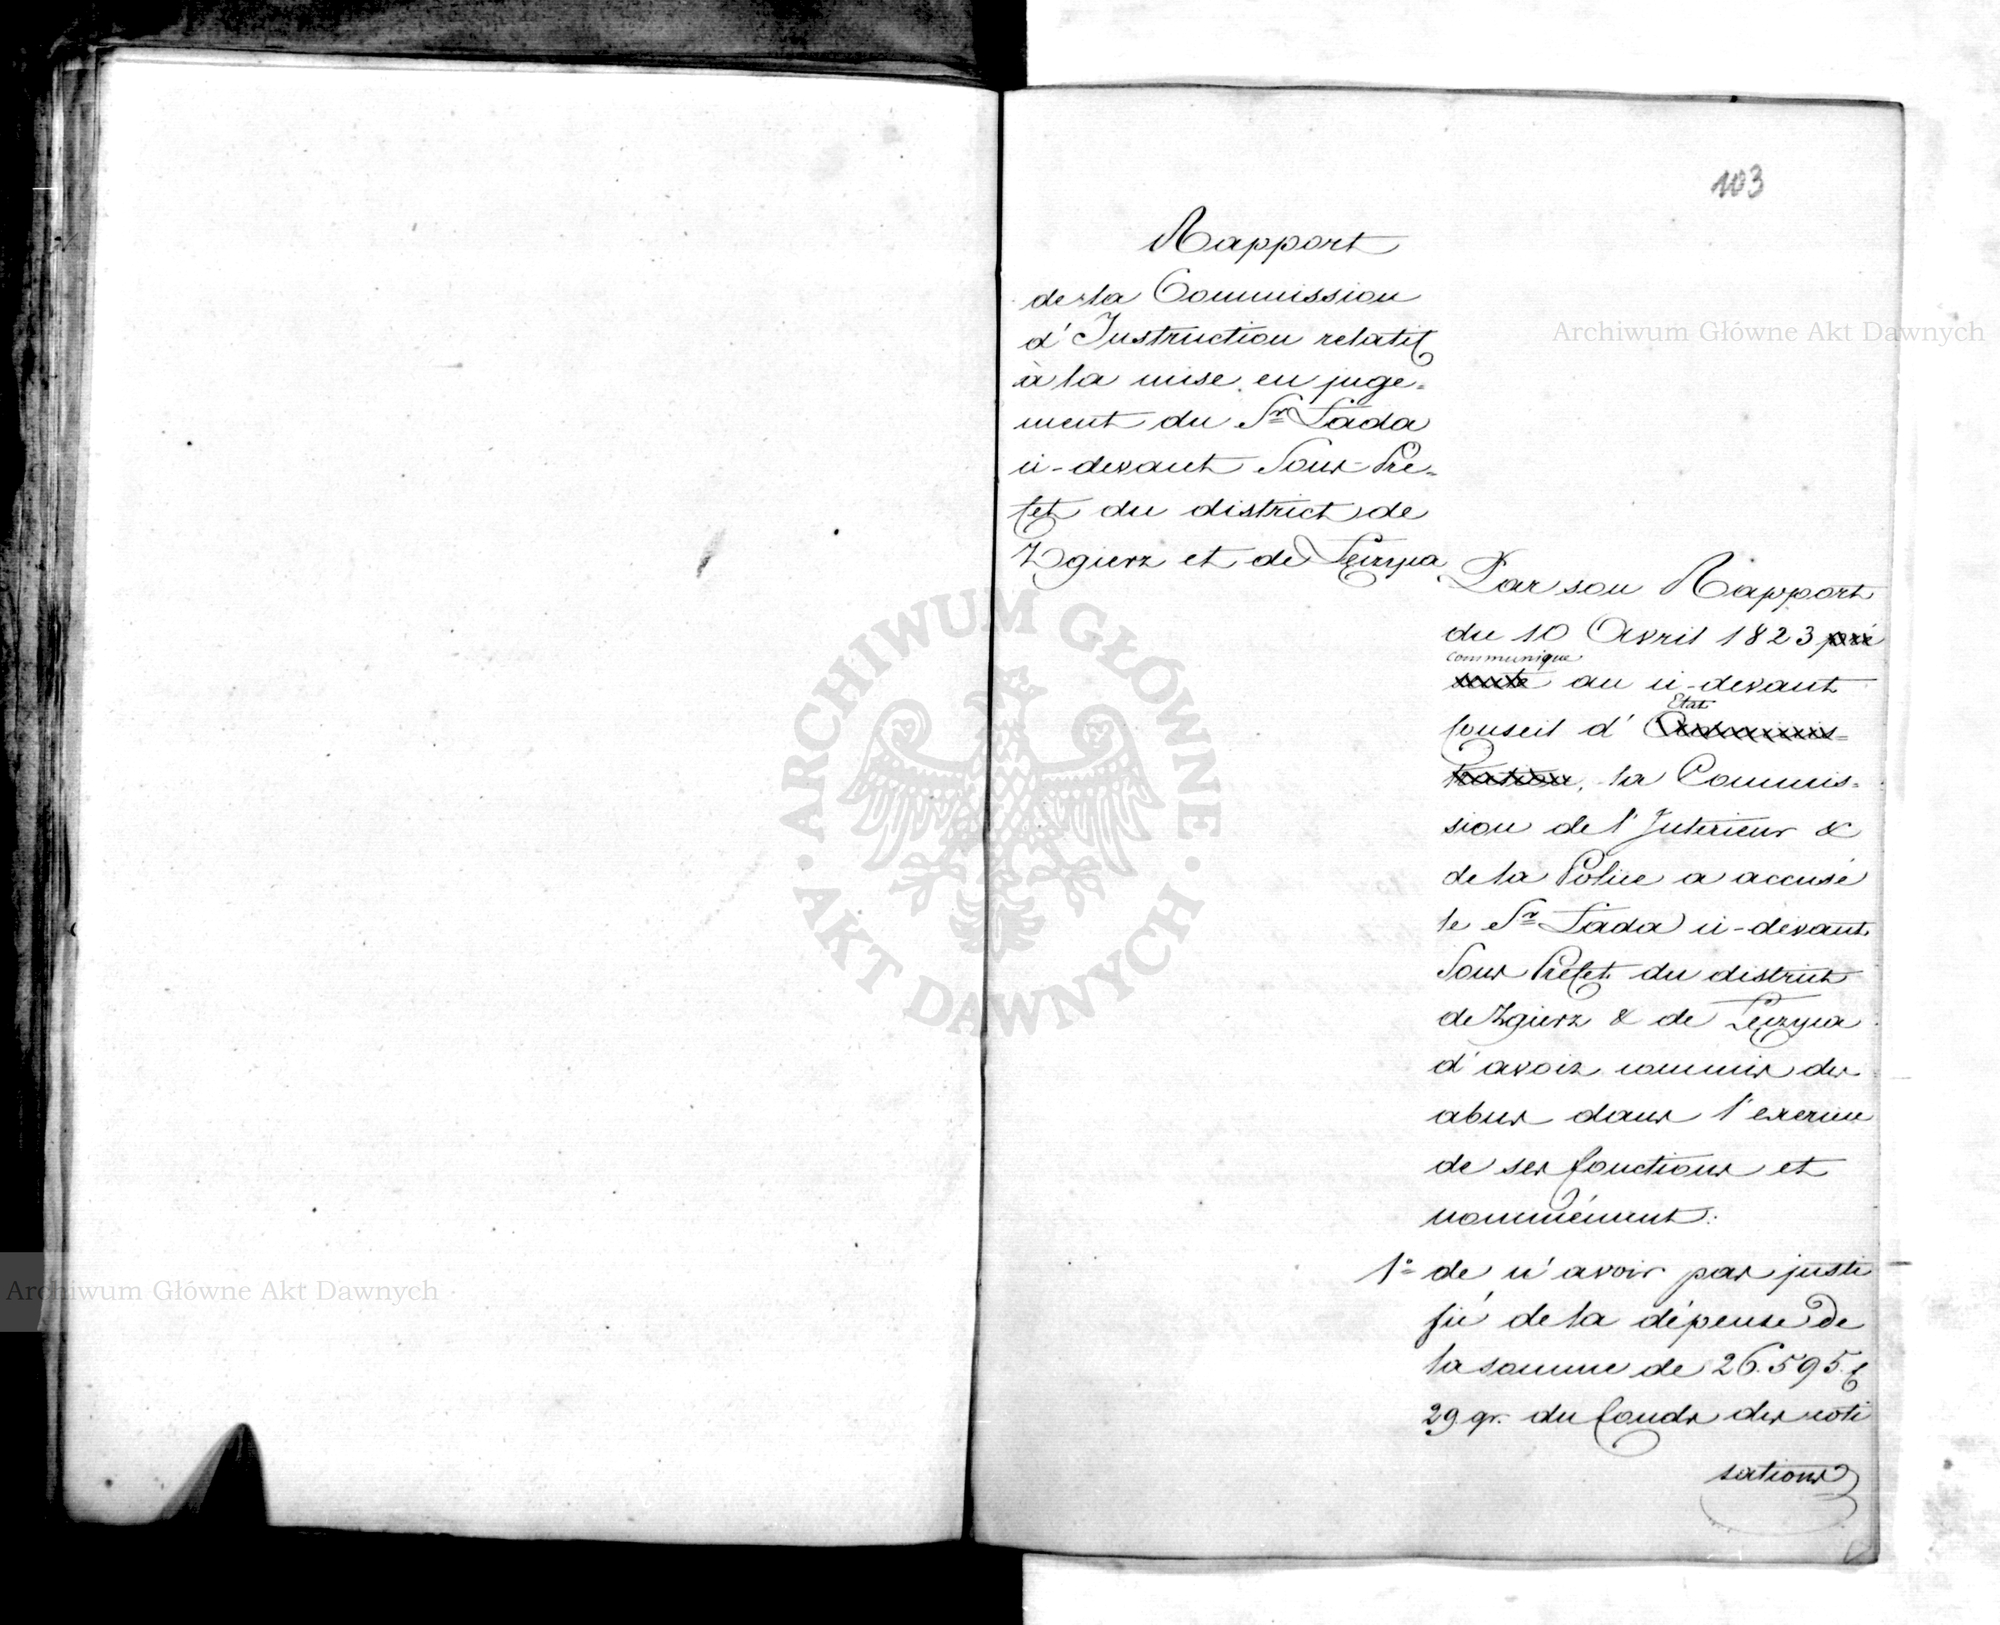 103
Rapport
de la Commission
d'Instruction relatif
à la mise en juge=
ment du Sr Łada
ci-devant Sous-Pré=
fet du district de
Zgierz et de Łęczyca
Par son Rapport
du 10 Avril 1823 pré
communiqué
senté au ci-devant
Etat
Conseil d'Adminis=
tration, la Commis=
sion de l'Intérieur &
de la Police a accusé
le Sr Łada ci-devant
Sous Préfet du district
de Zgierz & de Łęczyca
d'avoir commis des
abus dans l'exercice
de ses fonctions et
nommément:
1° de n'avoir pas justi
fié de la dépense de
la somme de 26.595 f
29 gr. du fonds des coti
sations
Archiwum Główne Akt Dawnych
Archiwum Główne Akt Dawnych
ARCHIWUM GŁÓWNE
AKT DAWNYCH